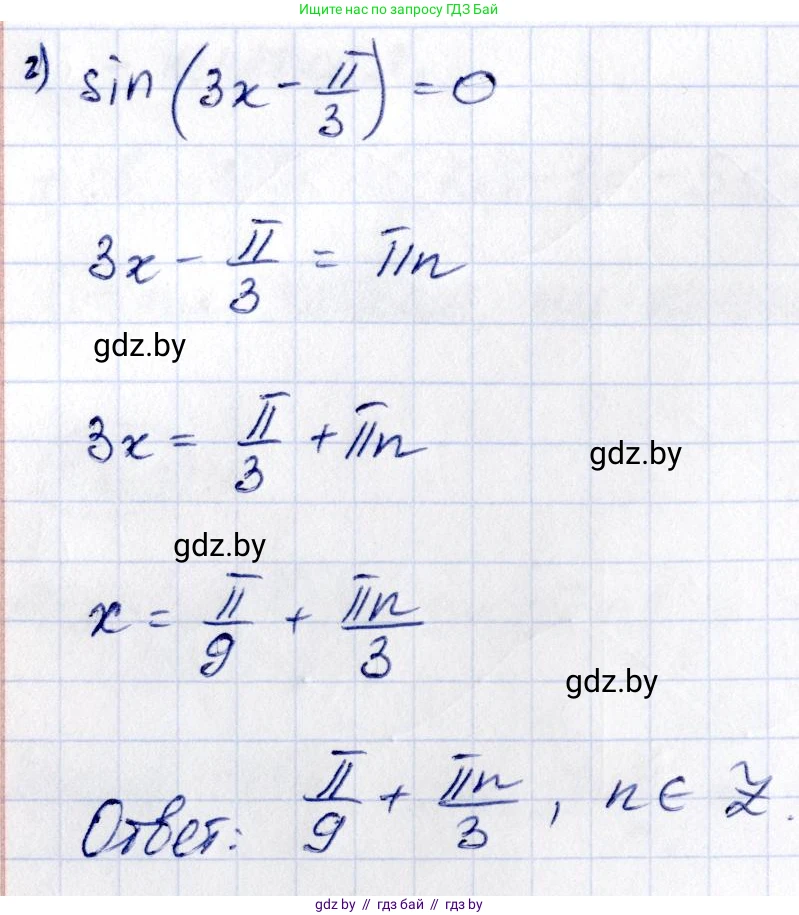 Ищите нас по запросу ГДЗ Бай
г) sin(3x - π/3) = 0
3x - π/3 = πn
gdz.by
3x = π/3 + πn
gdz.by
gdz.by
x = π/9 + πn/3
gdz.by
Ответ: π/9 + πn/3, n ∈ Z.
gdz.by // гдз бай // gdz.by